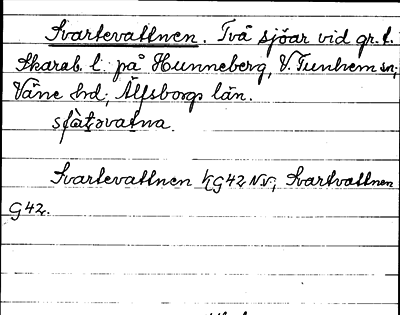 Svartevattnen. Två sjöar vid gr. t.
Skarab. l. på Hunneberg, V. Tunhem sn;
Väne hd; Älfsborgs län.
Svartevattnen KG42 NV; Svartvattnen
G42.